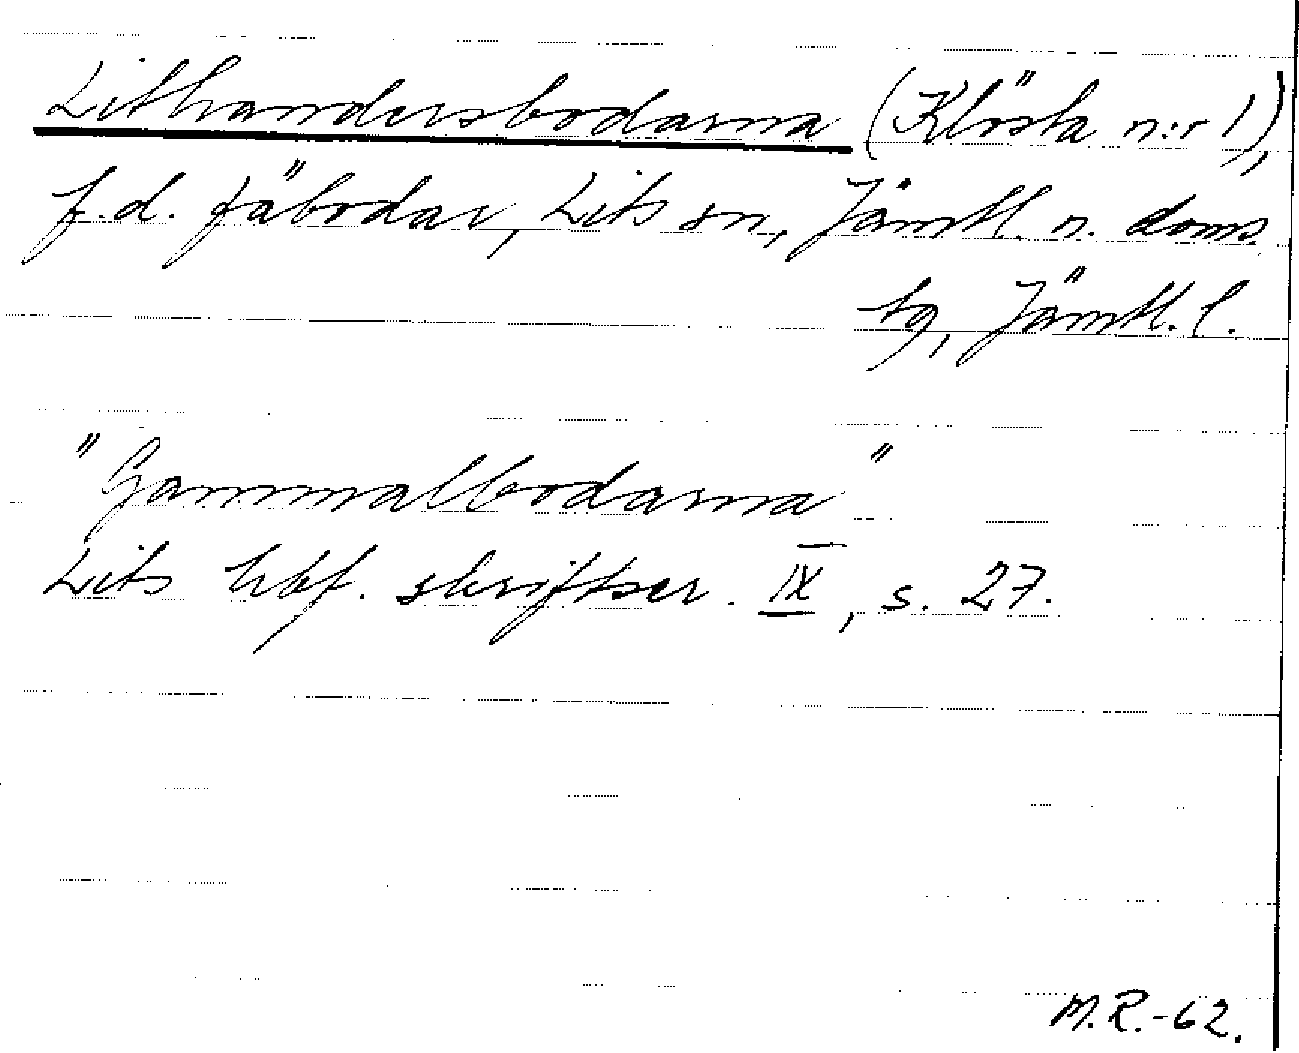 Lithandersbodarna (Klösta n:r 1),
f.d. fäbodar, Lits sn, Jämtl. n. doms.
tg, Jämtl. l.
"Gammalbodarna"
Lits hbf. skriftser. IX, s. 27.
M.R.-62.